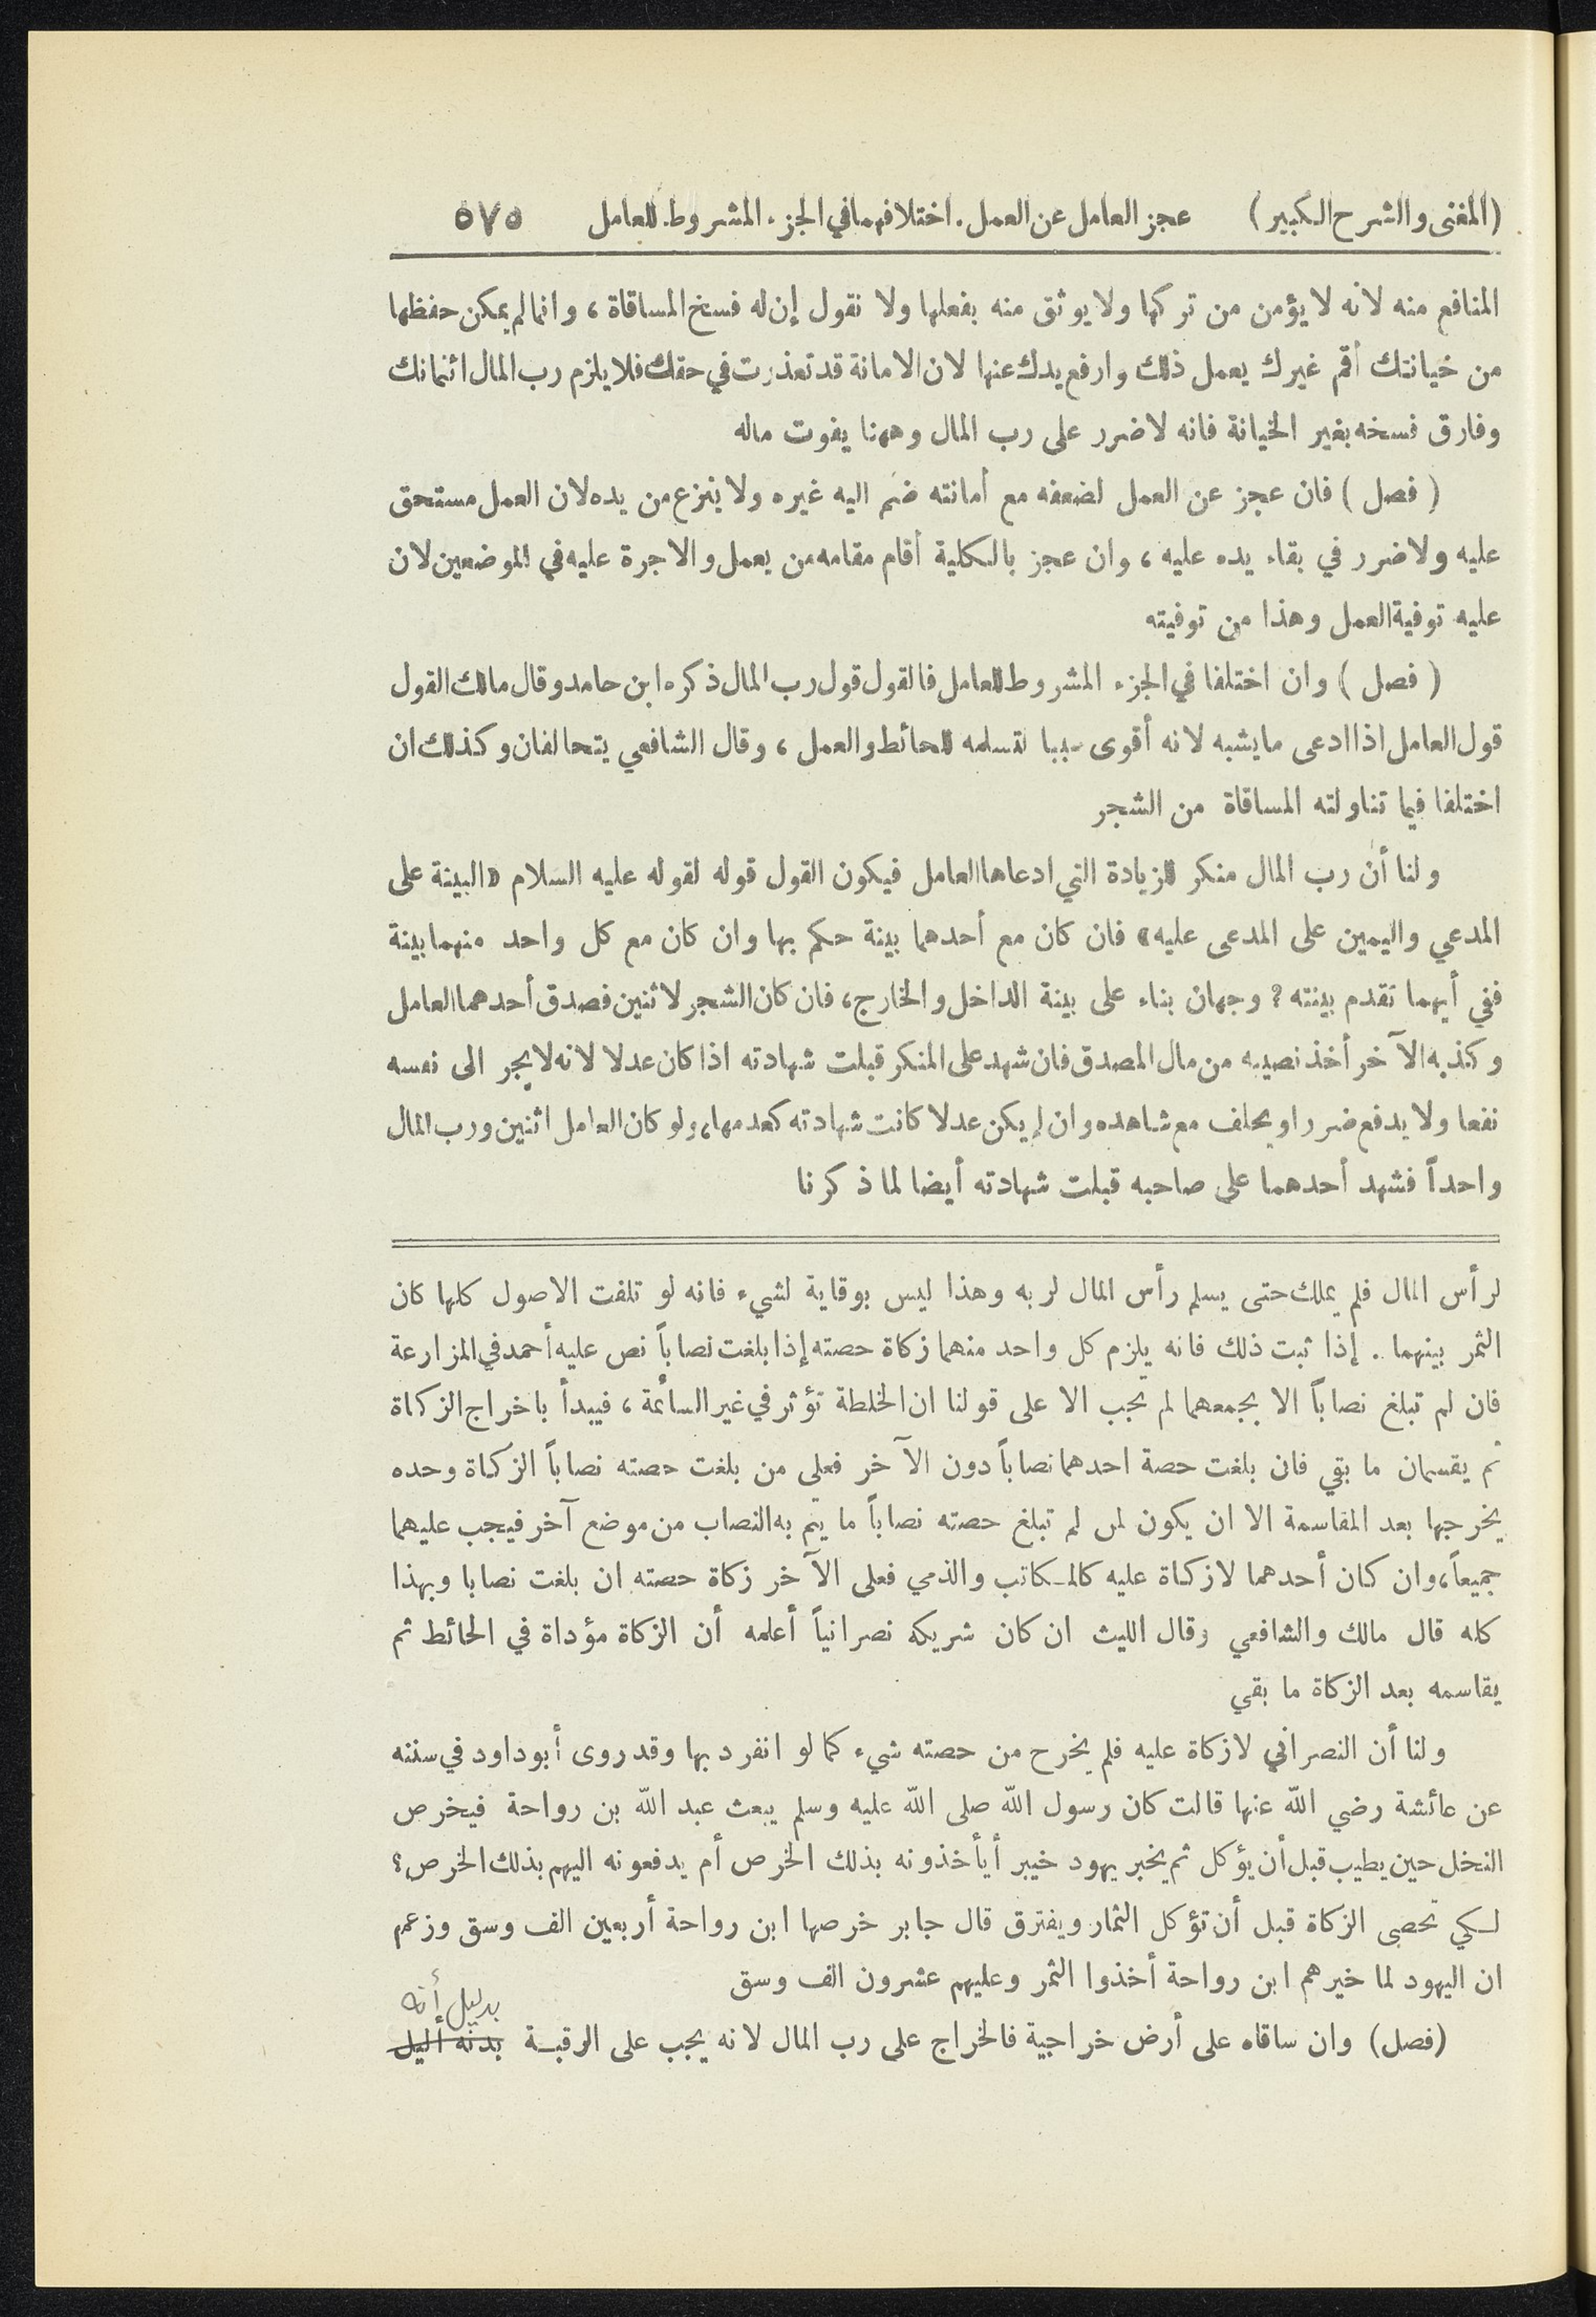 (المغنى والشرح الكبير) عجز العامل عن العمل. اختلافهما في الجزء المشروط للعامل ٥٧٥
المنافع منه لأنه لا يؤمن من تركها ولا يوثق منه بفعلها ولا نقول إن له فسخ المساقاة، وانما لم يمكن حفظها
من خيانتك أقم غيرك يعمل ذلك وارفع يدك عنها لان الامانة قد تعذرت في حقك فلا يلزم رب المال ائتمانك
وفارق فسخه بغير الخيانة فانه لا ضرر على رب المال وههنا يفوت ماله
( فصل ) فان عجز عن العمل لضعفه مع أمانته ضم اليه غيره ولا ينزع من يده لان العمل مستحق
عليه ولا ضرر في بقاء يده عليه، وان عجز بالكلية أقام مقامه من يعمل والاجرة عليه في الموضعين لان
عليه توفية العمل وهذا من توفيته
( فصل ) وان اختلفا في الجزء المشروط للعامل فالقول قول رب المال ذكره ابن حامد وقال مالك القول
قول العامل اذا ادعى ما يشبه لانه أقوى سببا لتسلمه للحائط والعمل، وقال الشافعي يتحالفان وكذلك ان
اختلفا فيما تناولته المساقاة من الشجر
ولنا أن رب المال منكر للزيادة التي ادعاها العامل فيكون القول قوله لقوله عليه السلام «البينة على
المدعي واليمين على المدعى عليه» فان كان مع أحدهما بينة حكم بها وان كان مع كل واحد منهما بينة
ففي أيهما تقدم بينته؟ وجهان بناء على بينة الداخل والخارج، فان كان الشجر لاثنين فصدق أحدهما العامل
وكذبه الآخر أخذ نصيبه من مال المصدق فان شهد على المنكر قبلت شهادته اذا كان عدلا لانه لا يجر الى نفسه
نفعا ولا يدفع ضررا ويحلف مع شاهده وان لم يكن عدلا كانت شهادته كعدمها، ولو كان العامل اثنين ورب المال
واحداً فشهد أحدهما على صاحبه قبلت شهادته أيضا لما ذكرنا
لرأس المال فلم يملك حتى يسلم رأس المال لربه وهذا ليس بوقاية لشيء فانه لو تلفت الاصول كلها كان
الثمر بينهما . إذا ثبت ذلك فانه يلزم كل واحد منهما زكاة حصته إذا بلغت نصاباً نص عليه أحمد في المزارعة
فان لم تبلغ نصاباً الا بجمعهما لم تجب الا على قولنا ان الخلطة تؤثر في غير السائمة، فيبدأ باخراج الزكاة
ثم يقسمان ما بقي فان بلغت حصة احدهما نصاباً دون الآخر فعلى من بلغت حصته نصاباً الزكاة وحده
يخرجها بعد المقاسمة الا ان يكون لمن لم تبلغ حصته نصاباً ما يتم به النصاب من موضع آخر فيجب عليهما
جميعاً، وان كان أحدهما لا زكاة عليه كالمكاتب والذمي فعلى الآخر زكاة حصته ان بلغت نصابا وبهذا
كله قال مالك والشافعي وقال الليث ان كان شريكه نصرانياً أعلمه أن الزكاة مؤداة في الحائط ثم
يقاسمه بعد الزكاة ما بقي
ولنا أن النصراني لا زكاة عليه فلم يخرح من حصته شيء كما لو انفرد بها وقد روى أبو داود في سننه
عن عائشة رضي الله عنها قالت كان رسول الله صلى الله عليه وسلم يبعث عبد الله بن رواحة فيخرص
النخل حين يطيب قبل أن يؤكل ثم يخبر يهود خيبر أيأخذونه بذلك الخرص أم يدفعونه اليهم بذلك الخرص؟
لكي تحصى الزكاة قبل أن تؤكل الثمار ويفترق قال جابر خرصها ابن رواحة أربعين الف وسق وزعم
ان اليهود لما خيرهم ابن رواحة أخذوا الثمر وعليهم عشرون الف وسق
بدليل أنه
(فصل) وان ساقاه على أرض خراجية فالخراج على رب المال لانه يجب على الرقبة بدنه اليل